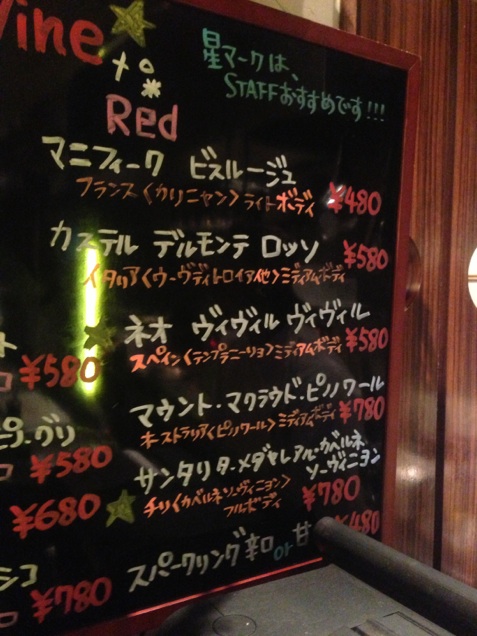 Wine
Red
星マークは、
STAFFおすすめです!!!
マニフィーク ビスルージュ
フランス〈カリニャン〉ライトボディ ¥480
カステル デルモンテ ロッソ
イタリア〈ウーヴディトロイア他〉ミディアムボディ ¥580
ネオ ヴィヴィル ヴィヴィル
スペイン〈テンプラニーリョ〉ミディアムボディ ¥580
マウント・マクラウド・ピノノワール
オーストラリア〈ピノノワール〉ミディアムボディ ¥780
サンタリタ・メダヤレアル・カベルネ
ソーヴィニヨン
チリ〈カベルネソーヴィニヨン〉
フルボディ
¥780
スパークリング 辛口 or 甘 ¥480
ト
ロ ¥580
ピ・グリ
ロ ¥580
¥680
シコ
¥780